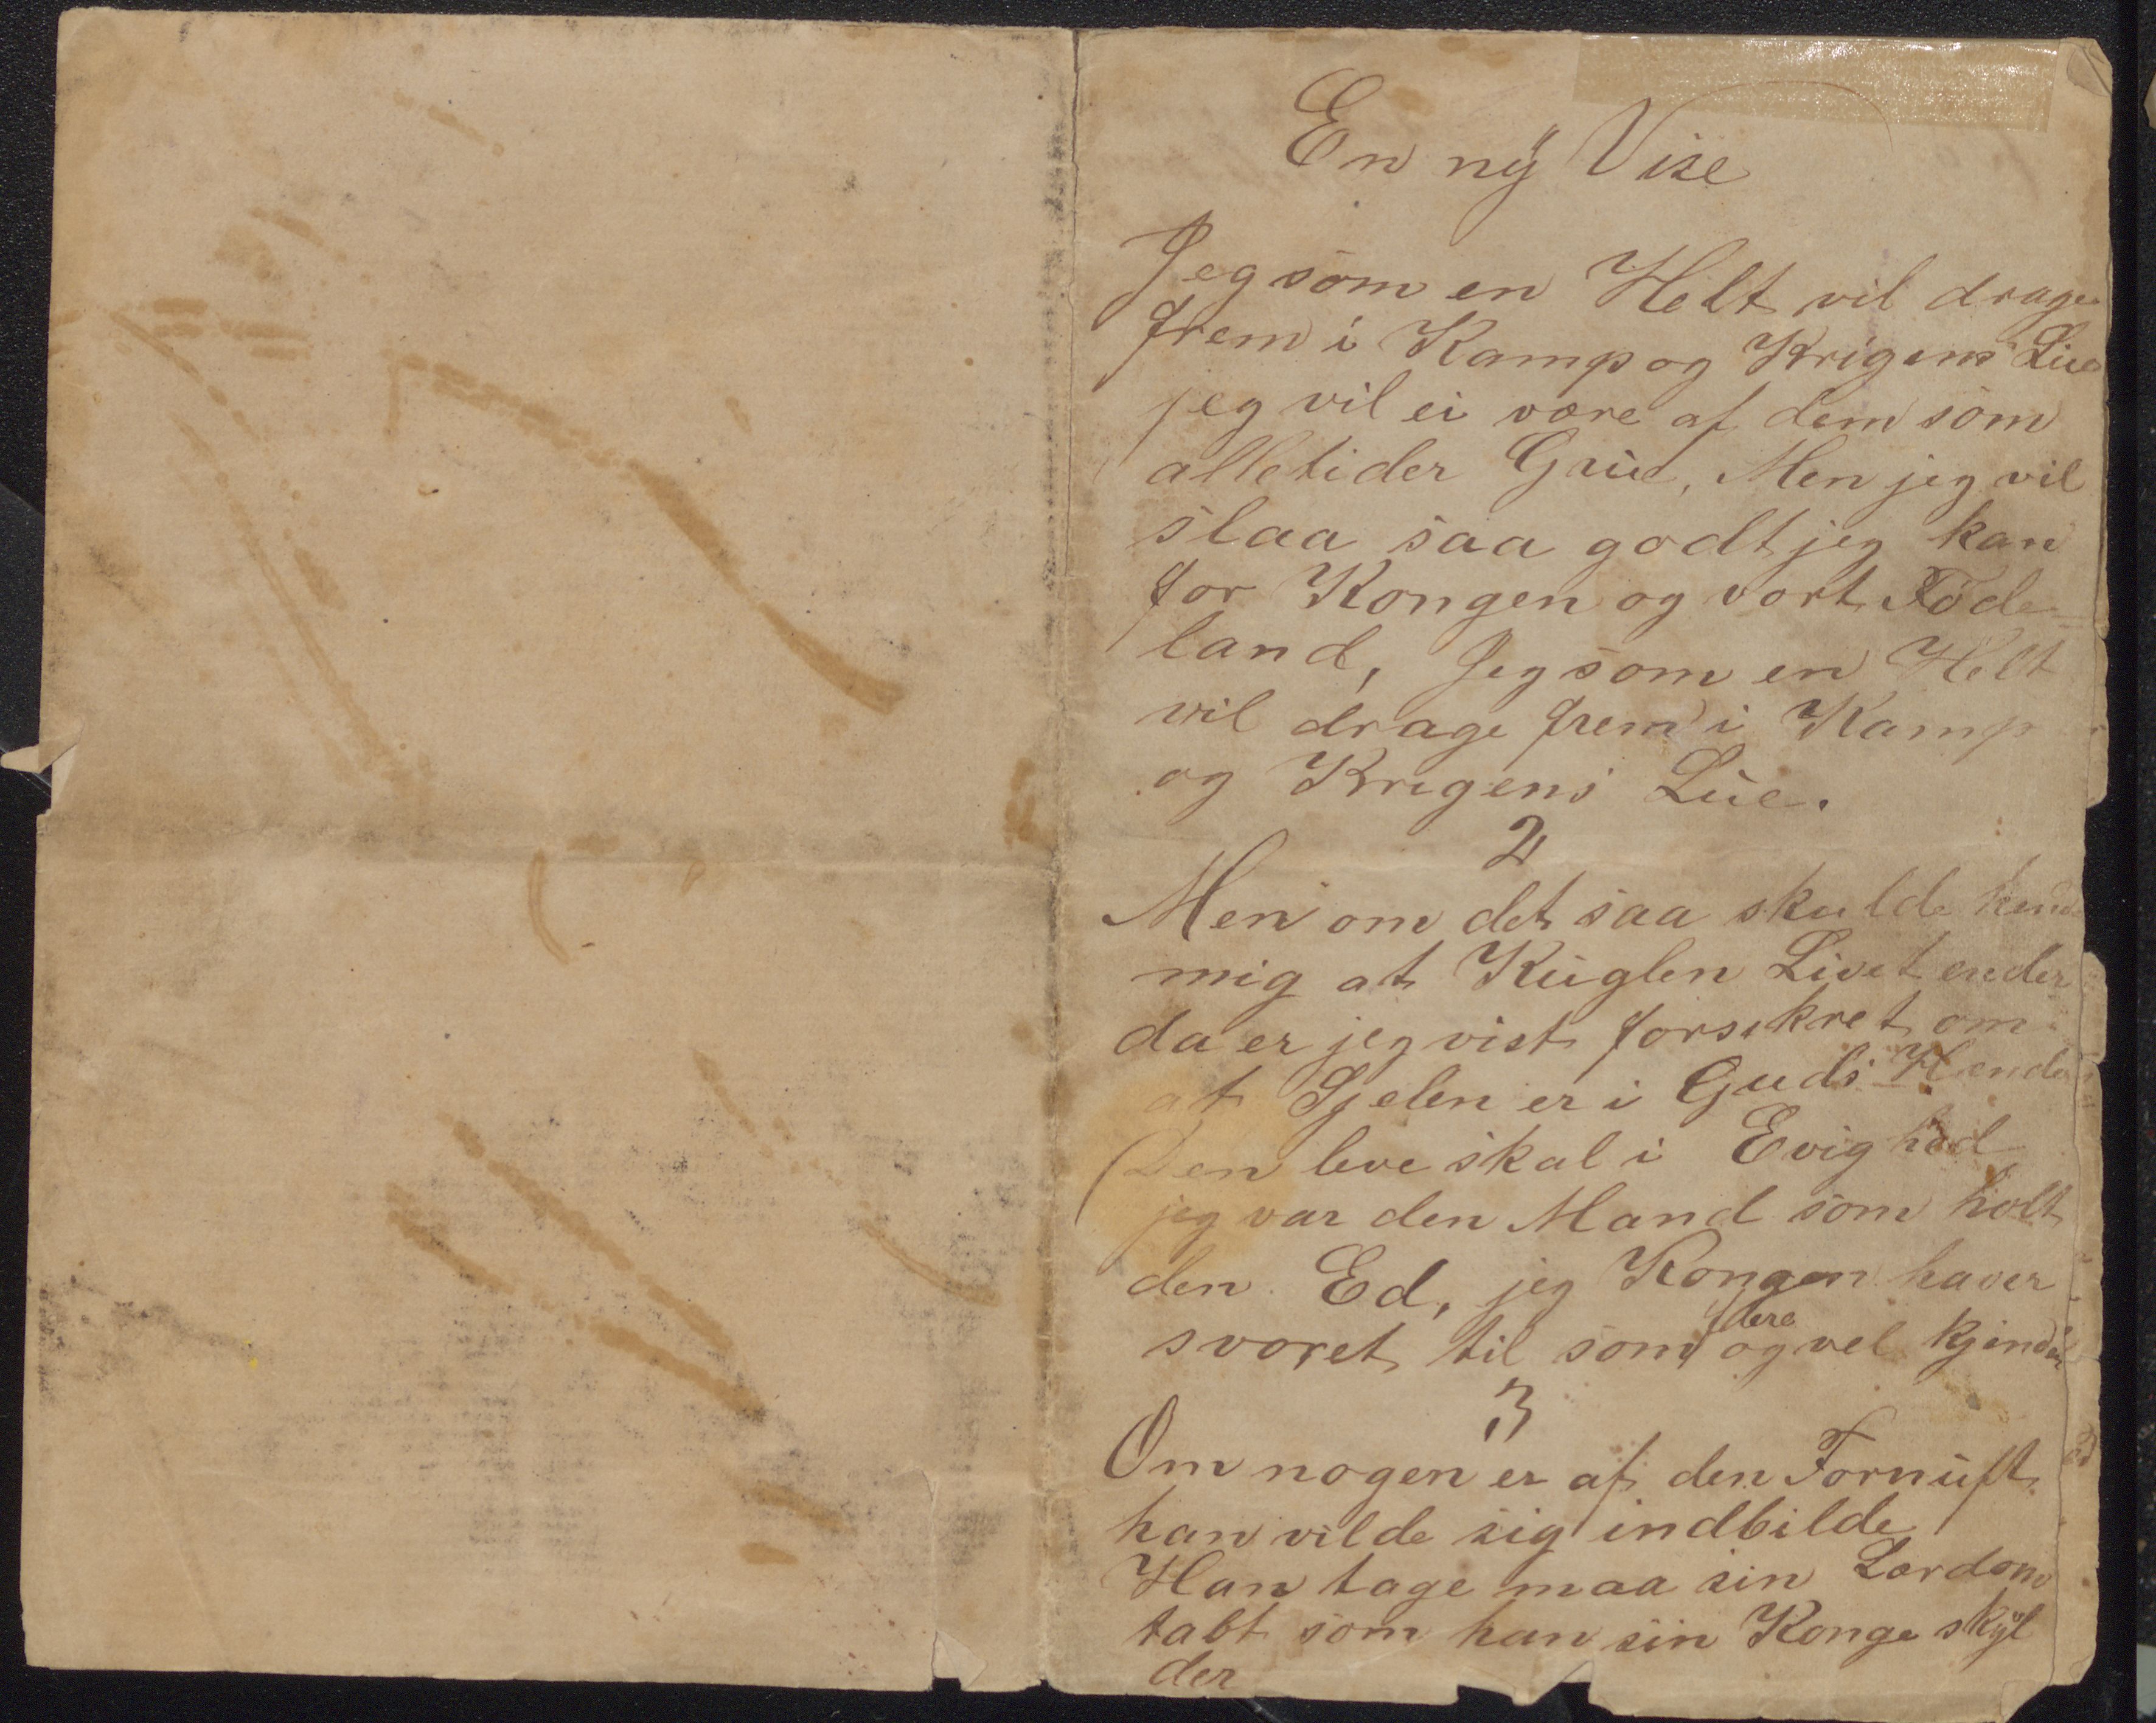 En nÿ Vise
Jeg som en Helt vil drage
frem i Kamp og Krigens Lue
jeg vil ei være af dem som
alletider Grue, Men jeg vil
slaa saa godt jeg kan
for Kongen og vort Føde-
land, Jeg som en Helt
vil drage frem i Kamp
og Krigens Lue.
2
Men om det saa skulde hende
mig at Kuglen Livet ender
da er jeg vist forsikret om
at Sjelen er i Guds Hender
Den leve skal i Evighed
jeg var den Mand som holt
den Ed, jeg Kongen haver
svoret til som dere og vel kjender
3
Om nogen er af den Fornuft
han vilde sig indbilde
Han tage maa sin Lærdom
tabt som han sin Konge skÿl
der